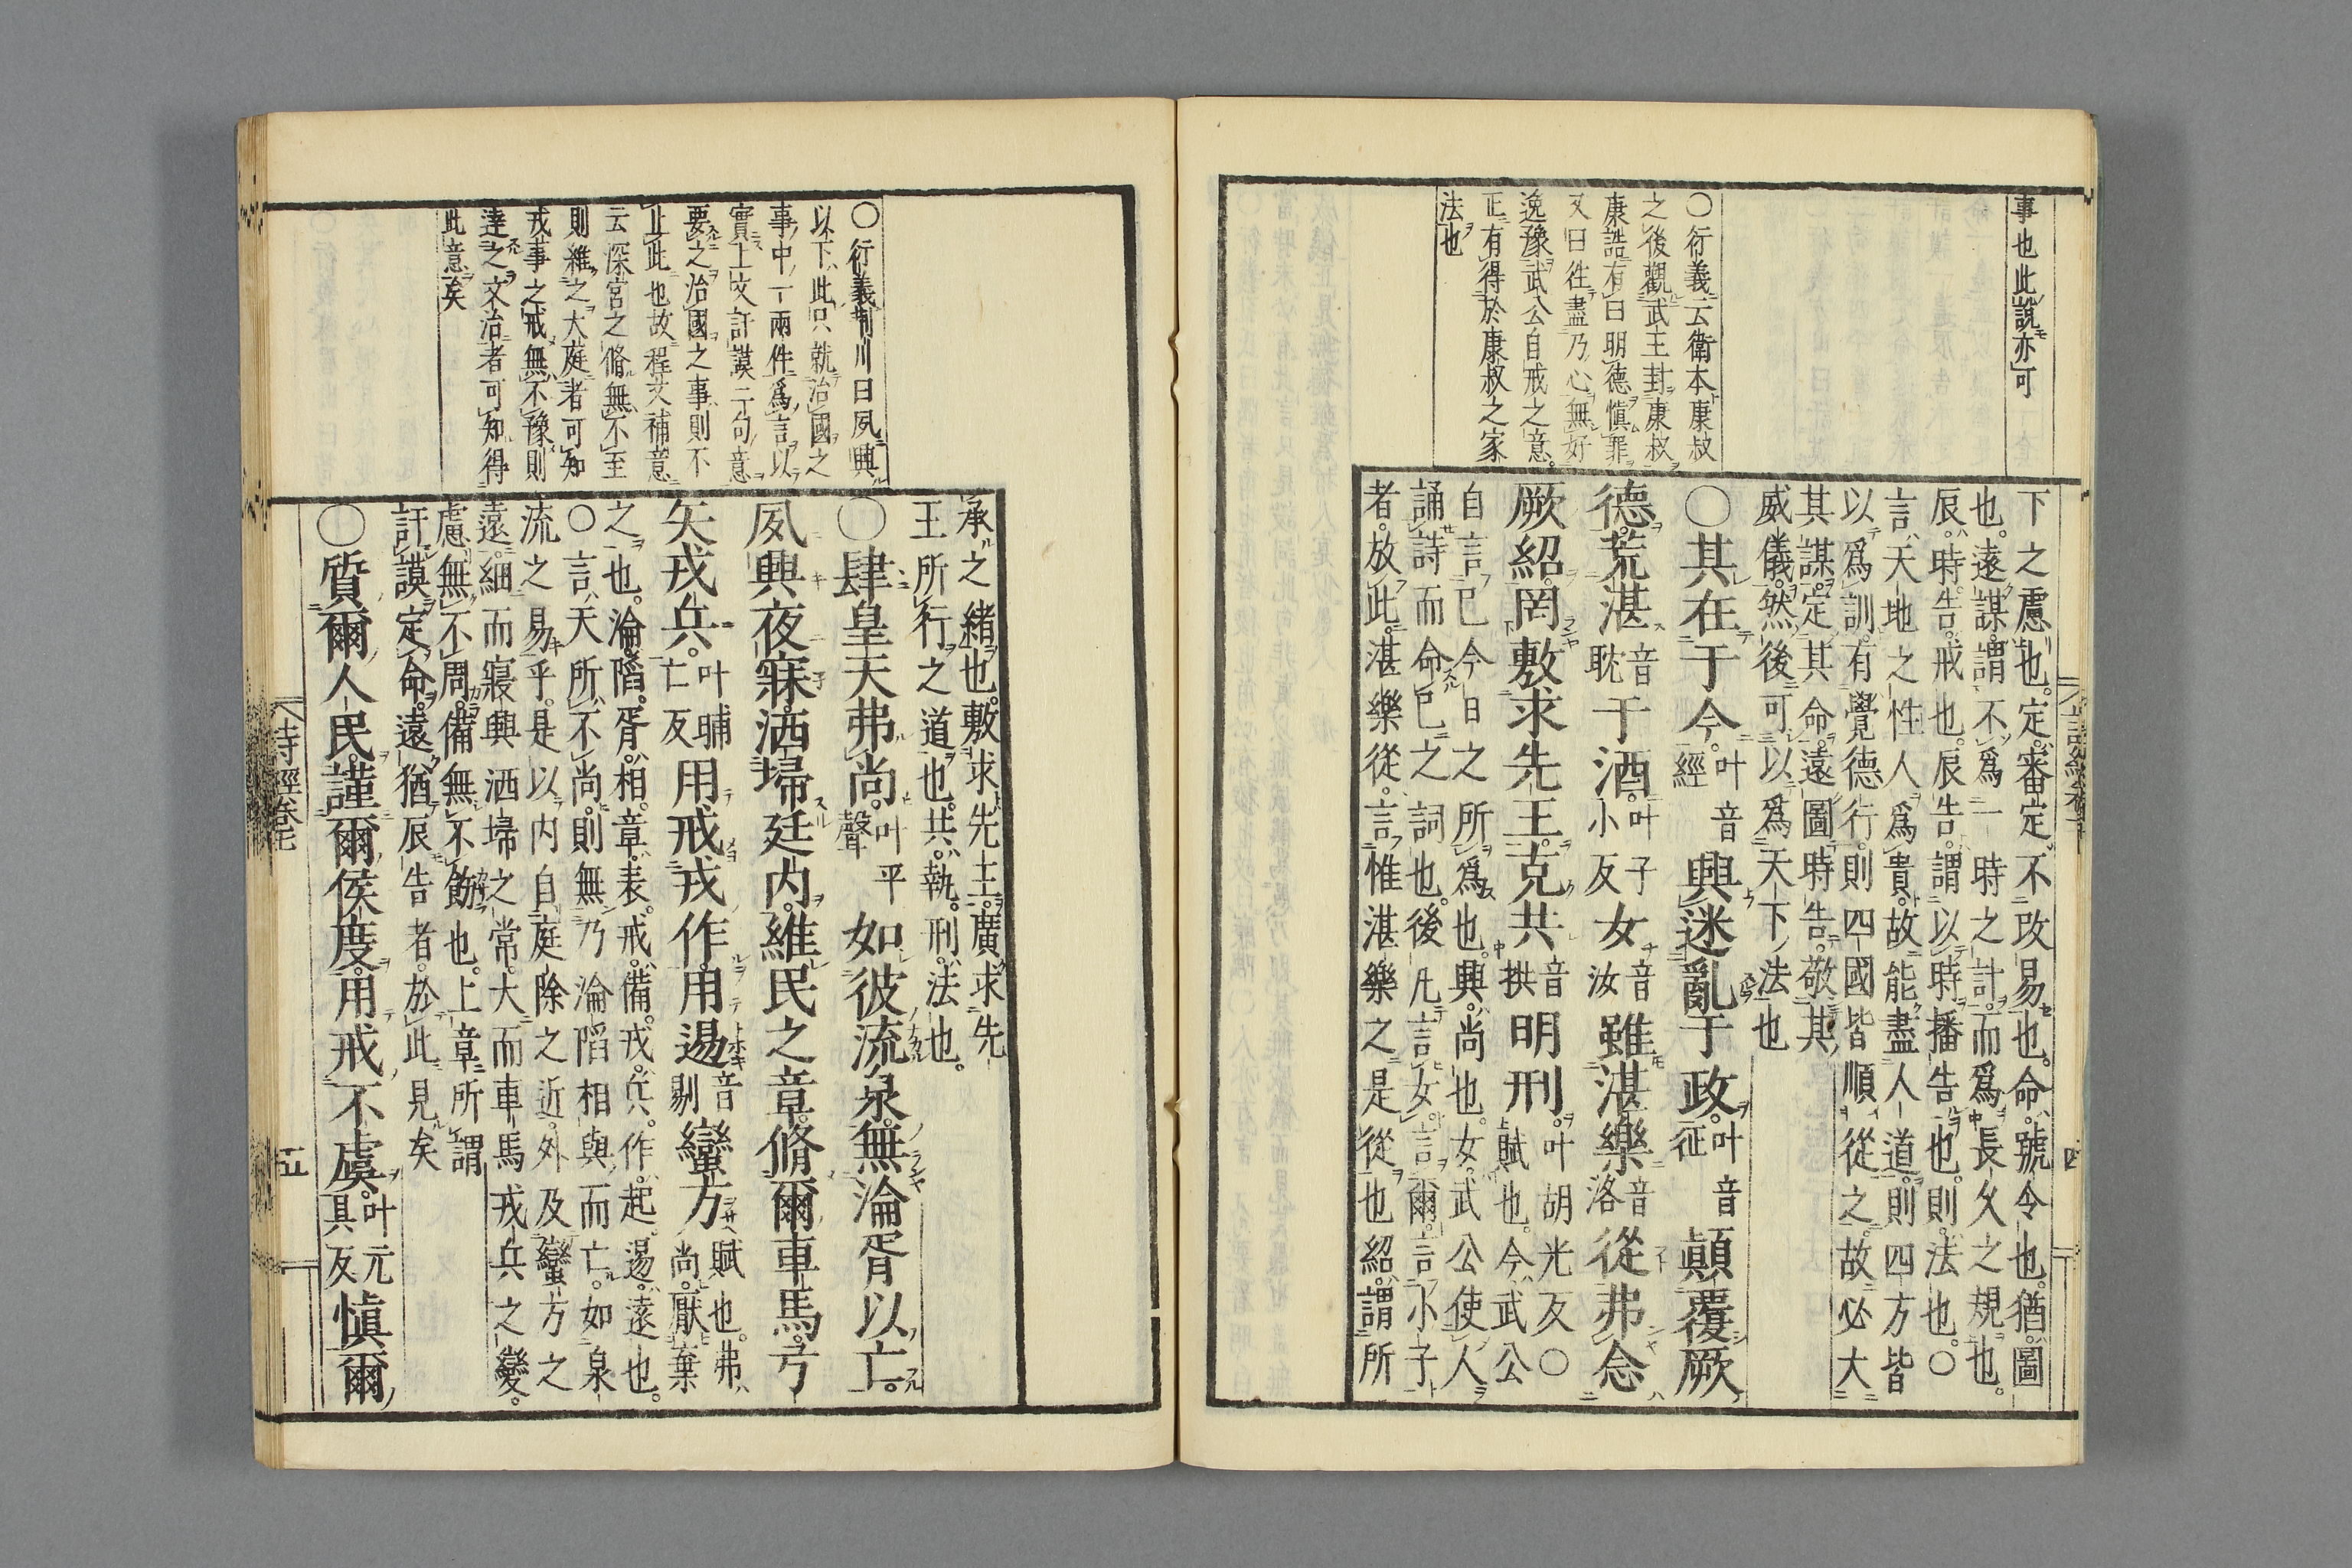 事也此説亦可
〇衍義云衛本康叔
之後觀武王封康叔
康誥有曰明德愼罪
又曰往盡乃心無好
逸豫武公自戒之意
正有得於康叔之家
法也
下之慮也。定。審定不改易也。命。號令也。猶。圖
也。遠謀。謂不爲一時之計。而爲長久之規也。
辰。時。告。戒也。辰告。謂以時播告也。則。法也。〇
言天地之性人爲貴。故能盡人道。則四方皆
以爲訓。有覺德行。則四國皆順從之。故必大
其謀。定其命。遠圖時告。敬其
威儀。然後可以爲天下法也
〇其在于今。叶音經興迷亂于政。叶音征顛覆厥
德。荒湛音耽于酒。叶子小反女音汝雖湛樂音洛從弗念
厥紹。罔敷求先王。克共音拱明刑。叶胡光反〇賦也。今武公
自言已今日之所爲也。興。尚也。女。武公使人
誦詩而命已之詞也。後凡言女。言爾。言小子
者。放此。湛樂從。言惟湛樂之是從也紹。謂所
四
〇衍義荆川曰夙興
以下此只就治國之
事中一兩件爲言以
實上文訏謨二句意
要之治國之事則不
止此也故程文補意
云深宮之脩無不至
則維之大庭者可知
戎事之戒無不豫則
達之文治者可知得
此意矣
承之緖也。敷求先王。廣求先
王所行之道也。共。執。刑。法也。
〇肆皇天弗尚。叶平聲如彼流泉。無淪胥以亡。
夙興夜寐。洒埽廷内。維民之章。脩爾車馬。弓
矢戎兵。叶晡亡反用戒戎作。用逷音剔蠻方賦也。弗尚。厭棄
之也。淪。陷。胥。相。章。表。戒。備。戎。兵。作。起。逷。遠也。
〇言天所不尚。則無乃淪陷相與而亡。如泉
流之易乎。是以内自庭除之近。外及蠻方之
遠。細而寢興洒埽之常。大而車馬戎兵之變。
慮無不周。備無不飭也。上章所謂
訏謨定命。遠猶辰告者。於此見矣
〇質爾人民。謹爾侯度。用戒不虞。叶元具反愼爾
詩經卷七
五